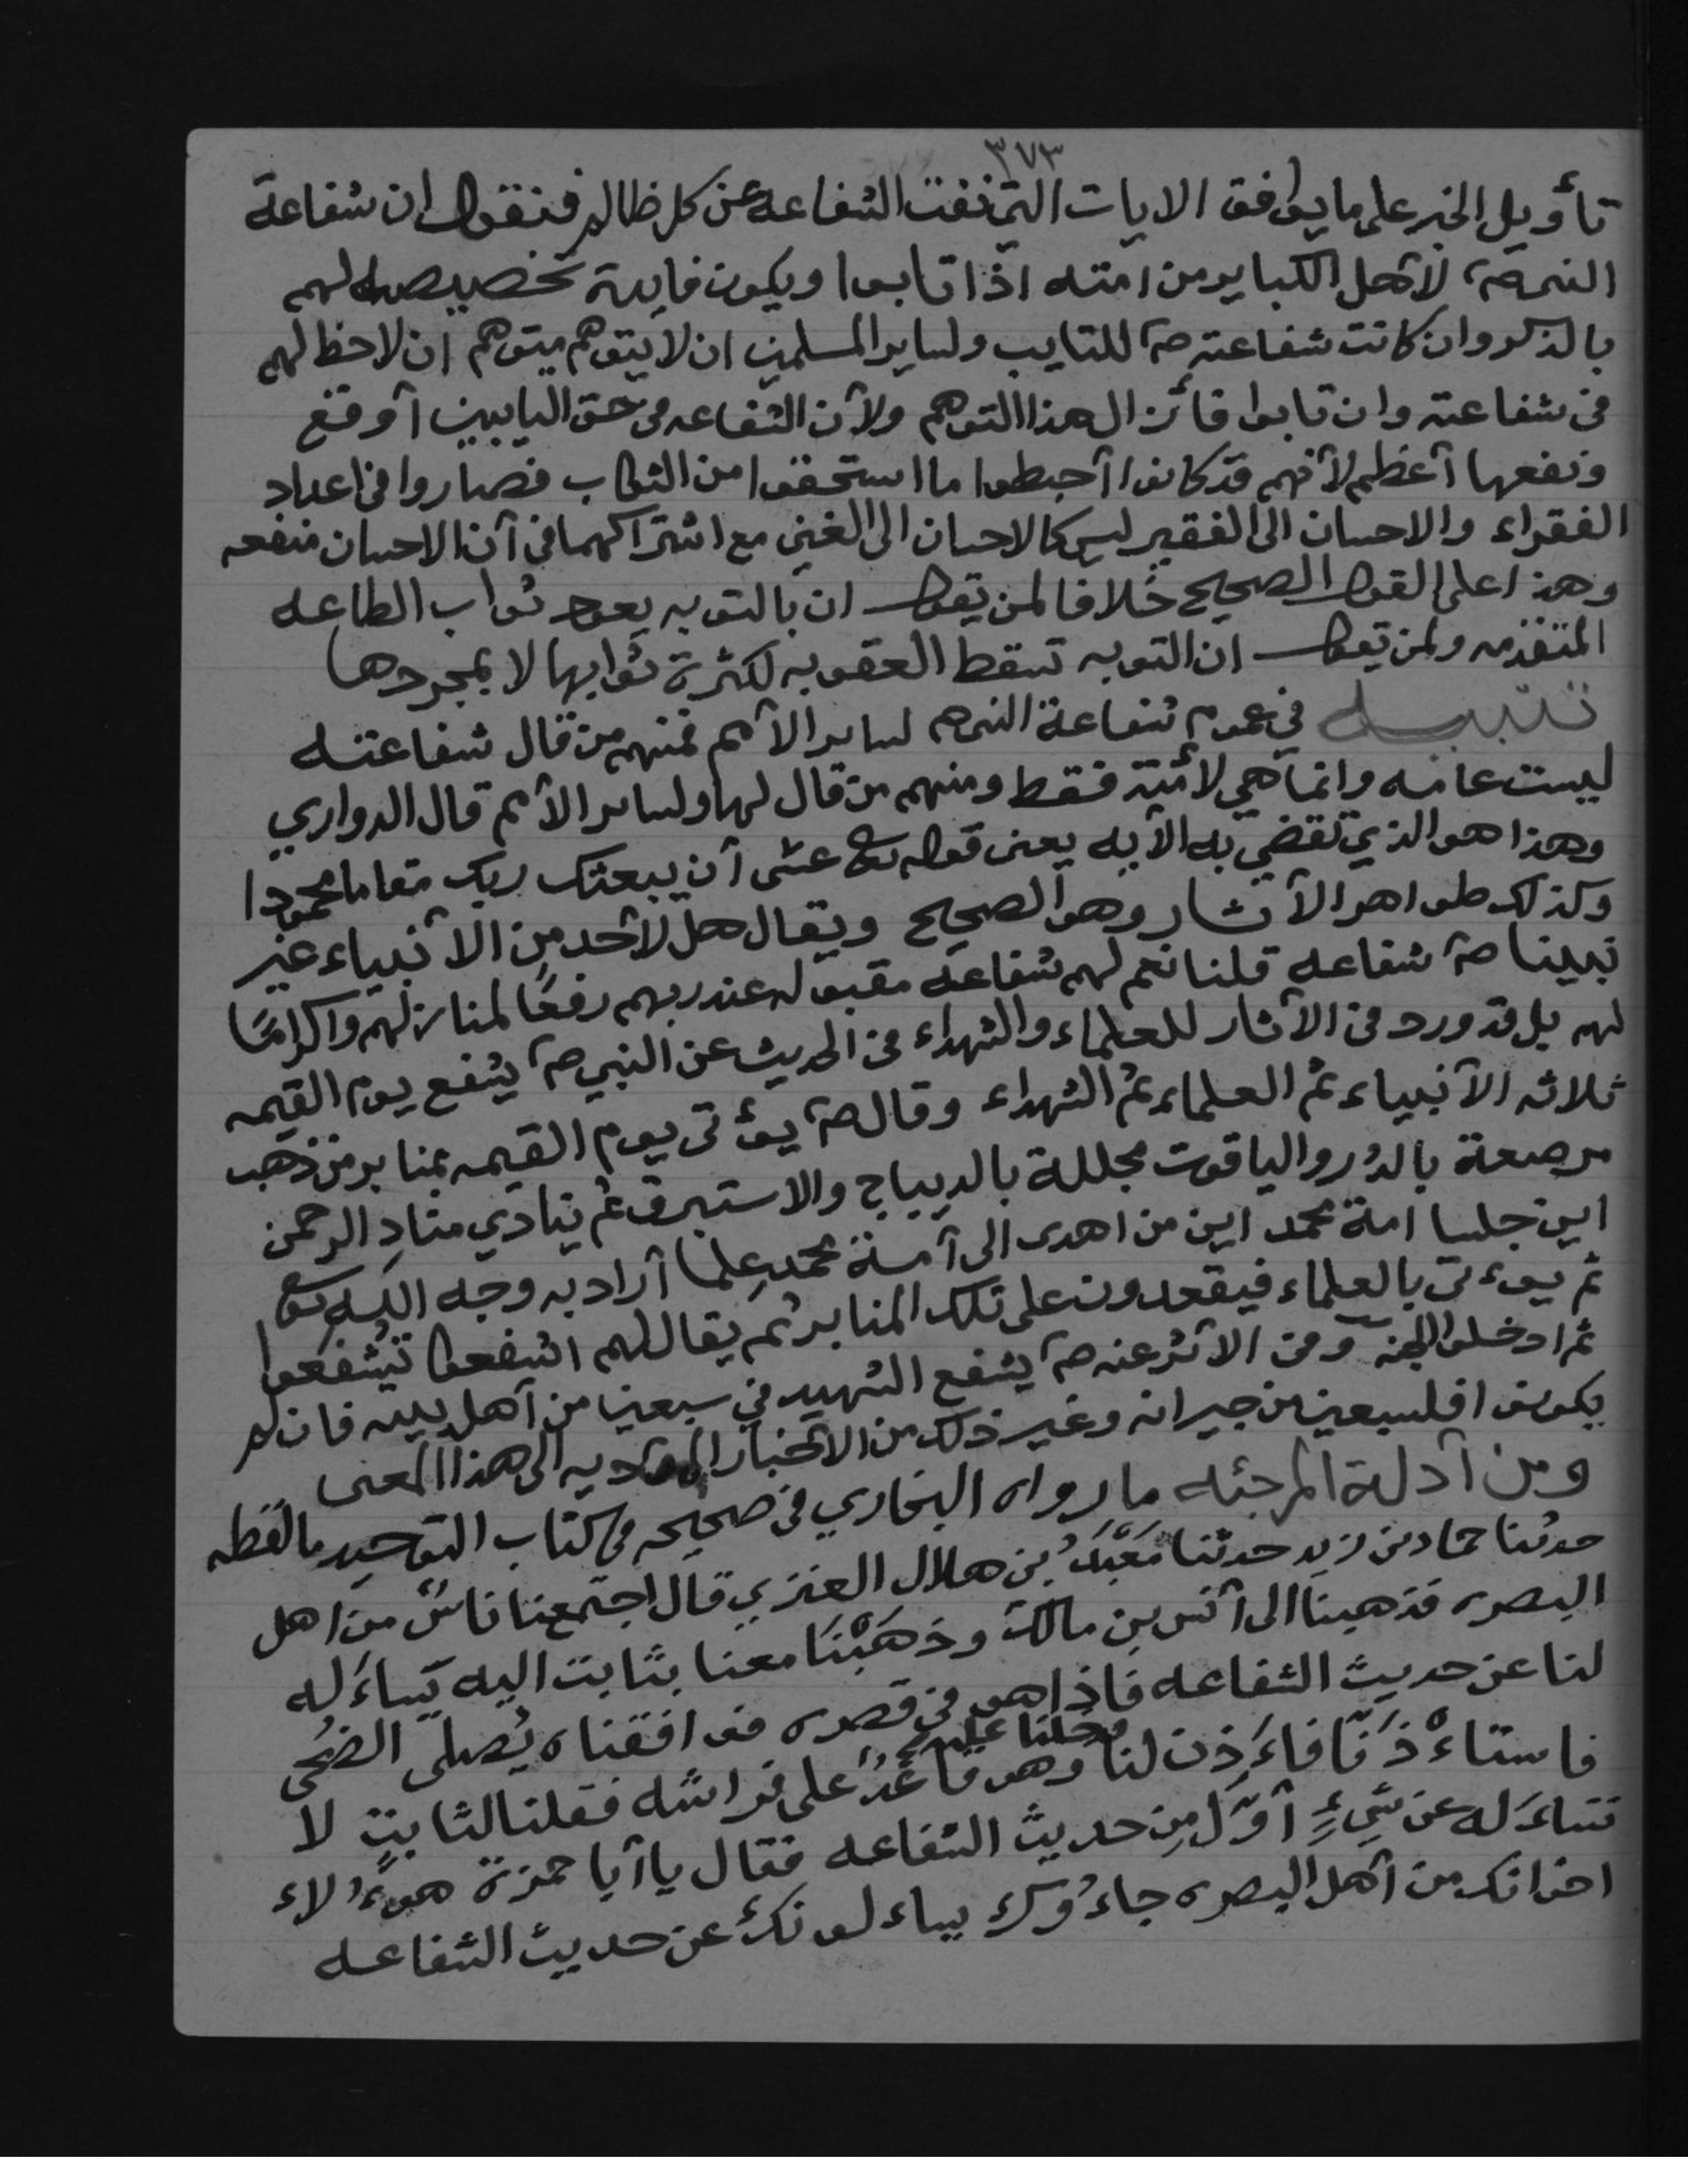 ٣٧٣
تأويل الخبر على ما يوافق الايات التي نفت الشفاعه عن كل ظالم فنقول ان شفاعة
النبي صم لأهل الكباير من امته اذا تابوا ويكون فايدة تخصيصه لهم
بالذكر وان كانت شفاعته صم للتايب ولساير المسلمين ان لا يتوهم متوهم ان لا حظ لهم
في شفاعته وان تابوا فأزال هذا التوهم ولأن الشفاعه في حق التايبين أوقع
ونفعها أعظم لأنهم قد كانوا أحبطوا ما استحقوا من الثواب فصاروا في اعداد
الفقراء والاحسان الى الفقير ليس كالاحسان الى الغني مع اشتراكهما في أن الاحسان منفعه
وهذا على القول الصحيح خلافا لمن يقول ان بالتوبه يعود ثواب الطاعه
المتقدمه ولمن يقول ان التوبه تسقط العقوبه لكثرة ثوابها لا بمجردها
تنبيه في عموم شفاعة النبي صم لساير الأمم فمنهم من قال شفاعته
ليست عامه وانما هي لأمته فقط ومنهم من قال لها ولساير الأمم قال الدواري
وهذا هو الذي تقضي به الأيه يعني قوله تع عسى أن يبعثك ربك مقاما محمودا
وكذلك ظواهر الأثار وهو الصحيح ويقال هل لأحد من الأنبياء غير
نبينا صم شفاعه قلنا نعم لهم شفاعة مقبوله عند ربهم رفعًا لمنازلهم واكرامًا
لهم بل قد ورد في الأثار للعلماء والشهداء في الحديث عن النبي صم يشفع يوم القيمه
ثلاثه الأنبياء ثم العلماء ثم الشهداء وقال صم يؤتى يوم القيمه بمنابر من ذهب
مرصعة بالدر والياقوت مجللة بالديباج والاستبرق ثم ينادي منادِ الرحمن
اين جلسا امة محمد اين من اهدى الى أمة محمد علما أراد به وجه الله تع
ثم يؤتى بالعلماء فيقعدون على تلك المنابر ثم يقال لهم اشفعوا تشفعوا
ثم ادخلوا الجنه وفي الأثر عنه صم يشفع الشهيد في سبعين من أهل بيته فان لم
يكونوا فلسبعين من جيرانه وغير ذلك من الأخبار المؤديه الى هذا المعنى
ومن أدلة المرجئه ما رواه البخاري في صحيحه في كتاب التوحيد ما لفظه
حدثنا حماد بن زيد حدثنا مَعْبَدُ بن هلال العنزي قال اجتمعنا ناسٌ من اهل
البصره فذهبنا الى أنس بن مالك وذهَبْنَا معنا بثابت اليه يساءَله
لنا عن حديث الشفاعه فاذا هو في قصره فوافقناه يُصلى الضُحى
فاستاءْذَنَّا فاءَذِن لنا فدخلنا عليه وهو قاعدٌ على فراشه فقلنا لثابتٍ لا
تساءَله عن شيءٍ أوّلَ مِن حديث الشفاعه فقال يا أبا حمزة هوءُلاء
اخوانك من أهل البصره جاءُوكَ يساءلونكَ عن حديث الشفاعه